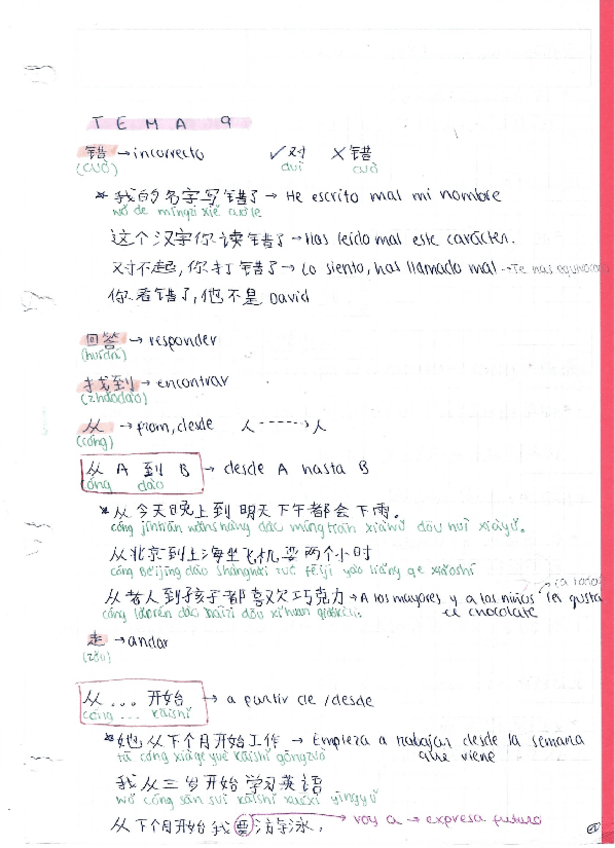 TEMA 9
错 → incorrecto ✓对 ✗错
(cuò) duì cuò
* 我的名字写错了 → He escrito mal mi nombre
wǒ de míngzi xiě cuò le
这个汉字你读错了 → Has leído mal este carácter.
对不起,你打错了 → Lo siento, has llamado mal → Te has equivocado
你看错了,他不是 David
回答 → responder
(huídá)
找到 → encontrar
(zhǎodào)
从 → from, desde 人 -----→ 人
(cóng)
从 A 到 B → desde A hasta B
cóng dào
* 从今天晚上到明天下午都会下雨。
cóng jīntiān wǎnshàng dào míngtiān xiàwǔ dōu huì xiàyǔ.
从北京到上海坐飞机要两个小时
cóng Běijīng dào Shànghǎi zuò fēijī yào liǎng ge xiǎoshí
从老人到孩子都喜欢巧克力 → A los mayores y a los niños les gusta
el chocolate
cóng lǎorén dào háizi dōu xǐhuan qiǎokèlì
走 → andar
(zǒu)
从 ... 开始 → a partir de / desde
cóng ... kāishǐ
* 她从下个月开始工作 → Empieza a trabajar desde la semana
que viene
tā cóng xiàge yuè kāishǐ gōngzuò
我从三岁开始学习英语
wǒ cóng sān suì kāishǐ xuéxí yīngyǔ
从下个月开始我要去游泳, → voy a → expresa futuro